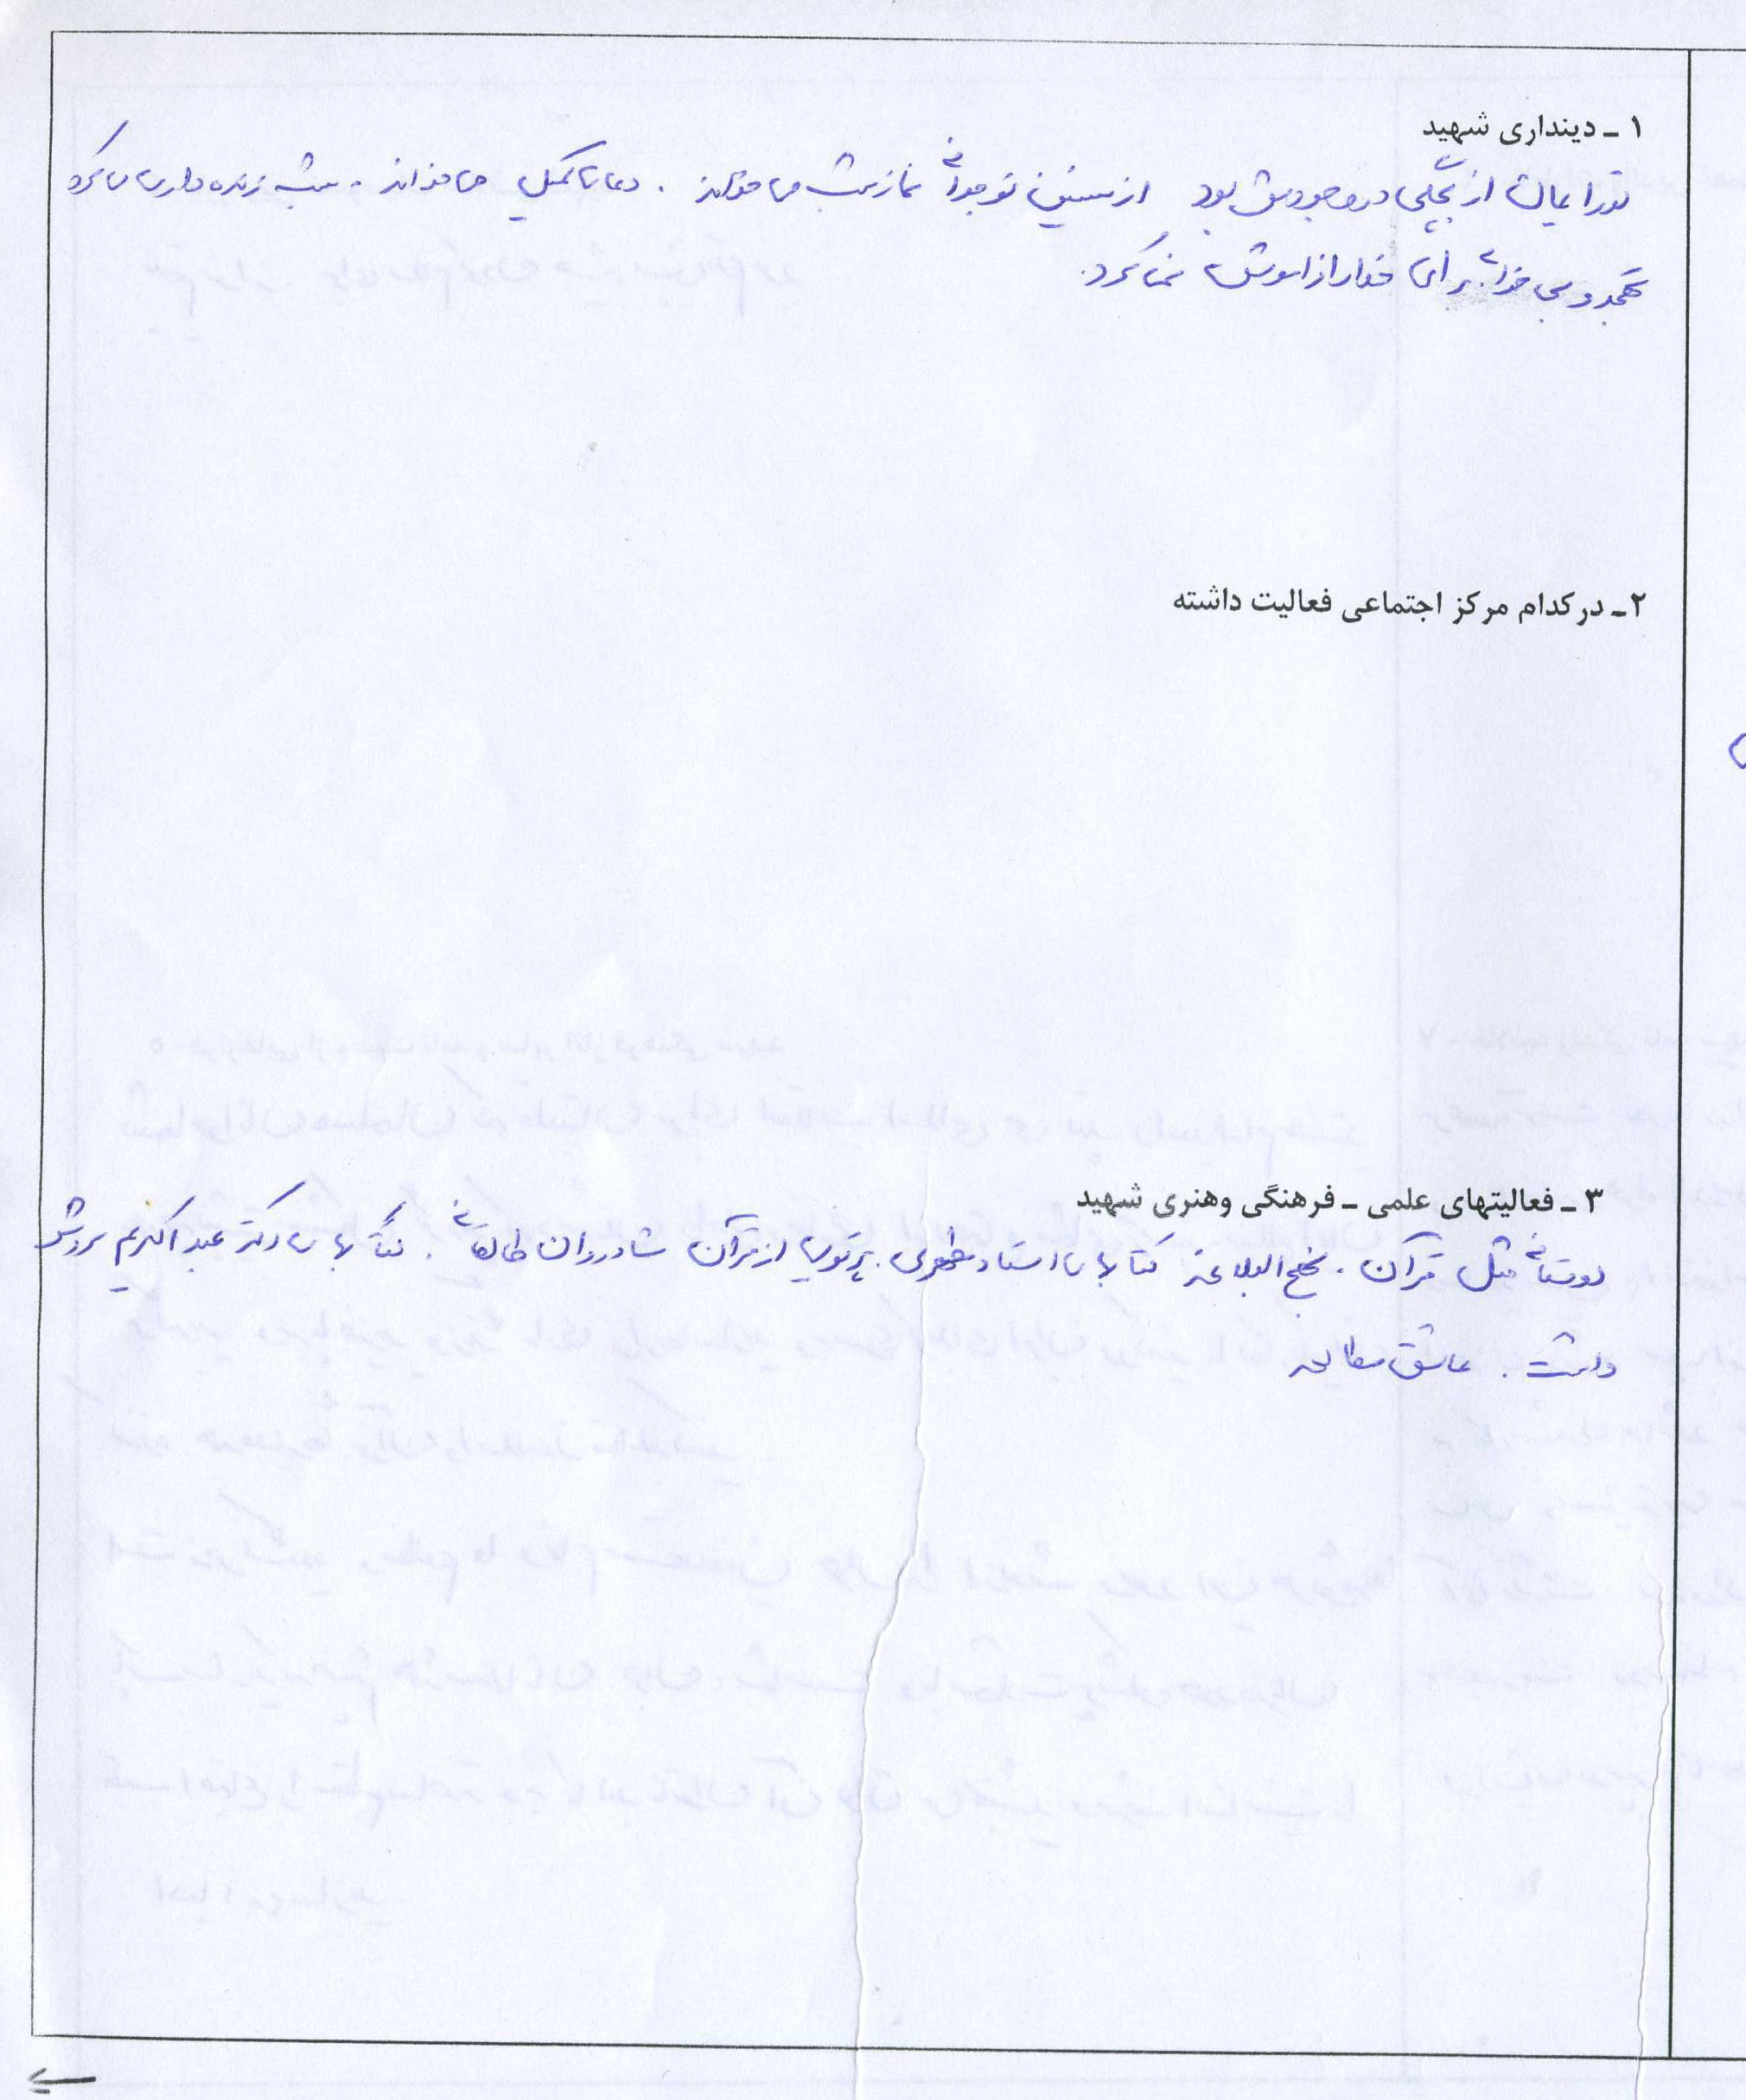 ۱ ـ دینداری شهید
نور ایمان از بچگی در وجودش بود از سنین نوجوانی نماز شب می خواند . دعای کمیل می خواند . شب زنده داری می کرد
تهجد و بی خوابی برای خدا را فراموش نمی کرد.
۲ـ در کدام مرکز اجتماعی فعالیت داشته
۳ ـ فعالیتهای علمی ـ فرهنگی وهنری شهید
دوستانی مثل قرآن . نهج البلاغه کتابهای استاد مطهری . پرتوی از قرآن شادروان طالقانی . کتابهای دکتر عبدالکریم سروش
داشت . عاشق مطالعه